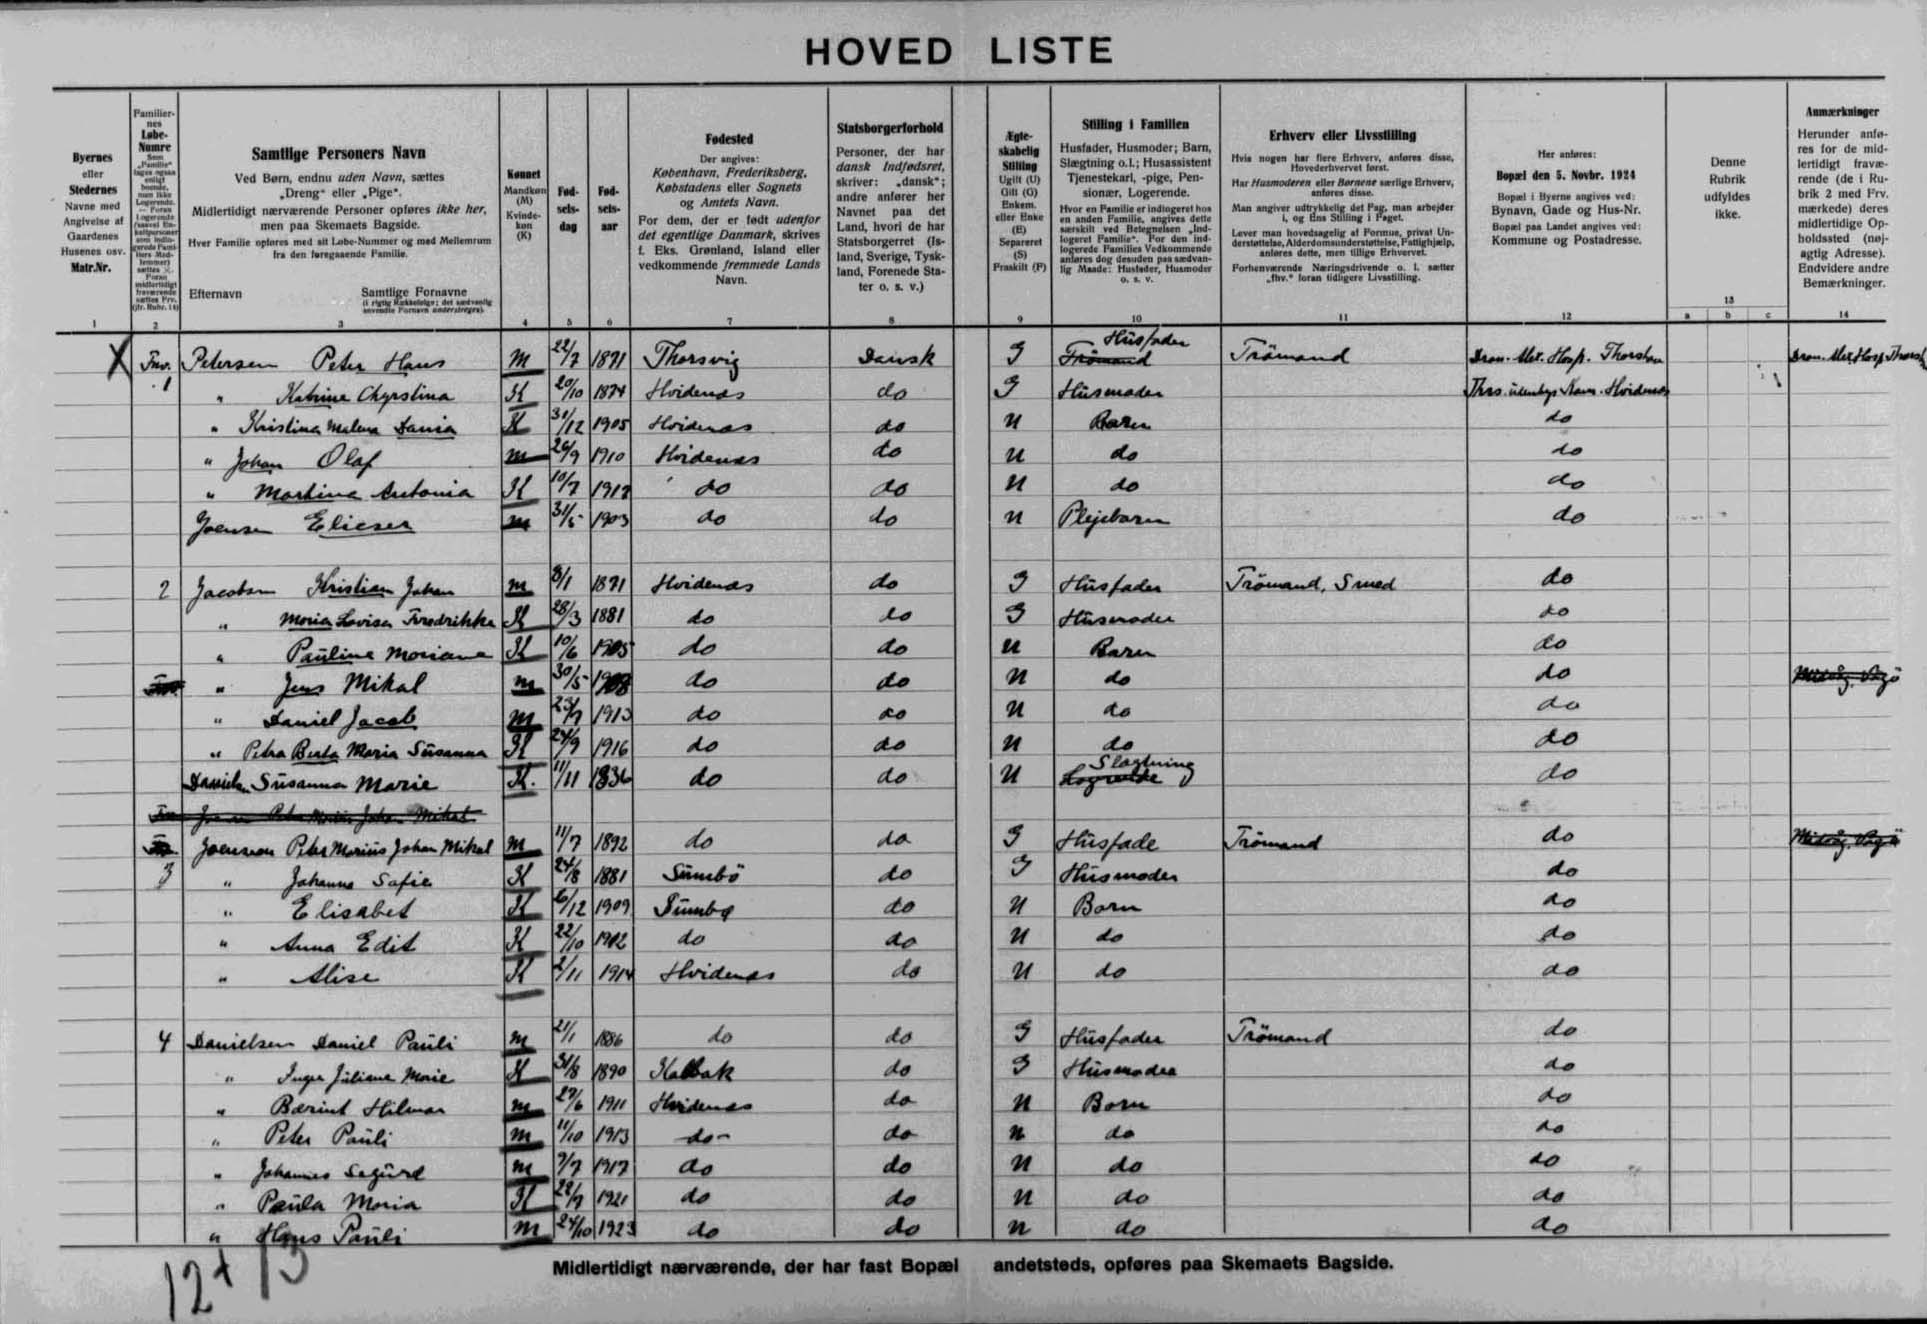 HOVED LISTE
Byernes
eller
Stedernes
Navne med
Angivelse af
Gaardenes
Husenes osv.
Matr.Nr.
1
Familier-
nes
Løbe-
Numre
2
Samtlige Personers Navn
Ved Børn, endnu uden Navn, sættes
„Dreng“ eller „Pige“.
Midlertidigt nærværende Personer opføres ikke her,
men paa Skemaets Bagside.
Hver Familie opføres med sit Løbe-Nummer og med Mellemrum
fra den foregaaende Familie.
Efternavn
Samtlige Fornavne
(i rigtig Rækkefølge; det sædvanlig
anvendte Fornavn understreges).
3
Kønnet
Mandkøn
(M)
Kvinde-
køn
(K)
4
Fød-
sels-
dag
5
Fød-
sels-
aar
6
Fødested
Der angives:
København, Frederiksberg,
Købstadens eller Sognets
og Amtets Navn.
For dem, der er født udenfor
det egentlige Danmark, skrives
f. Eks. Grønland, Island eller
vedkommende fremmede Lands
Navn.
7
Statsborgerforhold
Personer, der har
dansk Indfødsret,
skriver: „dansk“;
andre anfører her
Navnet paa det
Land, hvori de har
Statsborgerret (Is-
land, Sverige, Tysk-
land, Forenede Sta-
ter o. s. v.)
8
Ægte-
skabelig
Stilling
Ugift (U)
Gift (G)
Enkem.
eller Enke
(E)
Separeret
(S)
Fraskilt (F)
9
Stilling i Familien
Husfader, Husmoder; Barn,
Slægtning o.l.; Husassistent
Tjenestekarl, -pige, Pen-
sionær, Logerende.
Hvor en Familie er indlogeret hos
en anden Familie, angives dette
særskilt ved Betegnelsen „Ind-
logeret Familie“. For den ind-
logerede Families Vedkommende
anføres dog desuden paa sædvan-
lig Maade: Husfader, Husmoder
o. s. v.
10
Erhverv eller Livsstilling
Hvis nogen har flere Erhverv, anføres disse,
Hovederhvervet først.
Har Husmoderen eller Børnene særlige Erhverv,
anføres disse.
Man angiver udtrykkelig det Fag, man arbejder
i, og Ens Stilling i Faget.
Lever man hovedsagelig af Formue, privat Un-
derstøttelse, Alderdomsunderstøttelse, Fattighjælp,
anføres dette, men tillige Erhvervet.
Forhenværende Næringsdrivende o. l. sætter
„fhv.“ foran tidligere Livsstilling.
11
Her anføres:
Bopæl den 5. Novbr. 1924
Bopæl i Byerne angives ved:
Bynavn, Gade og Hus-Nr.
Bopæl paa Landet angives ved:
Kommune og Postadresse.
12
Denne
Rubrik
udfyldes
ikke.
13
a b c
Anmærkninger
Herunder anfø-
res for de mid-
lertidigt fravæ-
rende (de i Ru-
brik 2 med Frv.
mærkede) deres
midlertidige Op-
holdssted (nøj-
agtig Adresse).
Endvidere andre
Bemærkninger.
14
X Petersen Peter Hans M 22/7 1871 Thorsvig Dansk G Husfader Trömand
1 " Katrine Chyrstina K 20/10 1874 Hvidenæs do G Husmoder
" Kristina Malena Dania K 31/12 1905 Hvidenæs do U Barn do
" Johan Olaf M 26/9 1910 Hvidenæs do U do do
" Martine Antonia K 10/7 do do U do do
Joensen Elieser M 31/5 1903 do do U Plejebarn do
2 Jacobsen Kristian Johan M 8/1 1871 Hvidenæs do G Husfader Trömand, Smed do
" Maria Lovisa Fredrikke K 28/3 1881 do do G Husmoder do
" Pauline Mariane K 10/6 1905 do do U Barn do
" Jens Mikal M 30/5 1908 do do U do do
" Daniel Jacob M 1913 do do U do do
" Petra Berta Maria Susanna K 24/9 1916 do do U do do
Danielsen Susanna Marie K. 11/11 1836 do do U Slægtning do
Joensen Peter Marius Johan Mikal M 11/7 1892 do do G Husfade Trömand do
3 " Johanna Safie K 24/8 1881 Sumbö do G Husmoder do
" Elisabet K 6/12 1909 Sumbø do U Barn do
" Anna Edit K 22/10 do do U do do
" Alise K 2/11 1914 Hvidenæs do U do do
4 Danielsen Daniel Pauli M 21/1 1886 do do G Husfader Trömand do
" Inger Juliane Marie K 31/8 1890 Kalbak do G Husmoder do
" Bærint Hilmar M 29/6 1911 Hvidenæs do U Barn do
" Peter Pauli M 11/10 1913 -do- do U do do
" Johannes Segurd M 7/7 1917 do do U do do
" Paula Maria K 1921 do do U do do
" Hans Pauli M 24/10 1923 do do U do do
Midlertidigt nærværende, der har fast Bopæl andetsteds, opføres paa Skemaets Bagside.
12+13